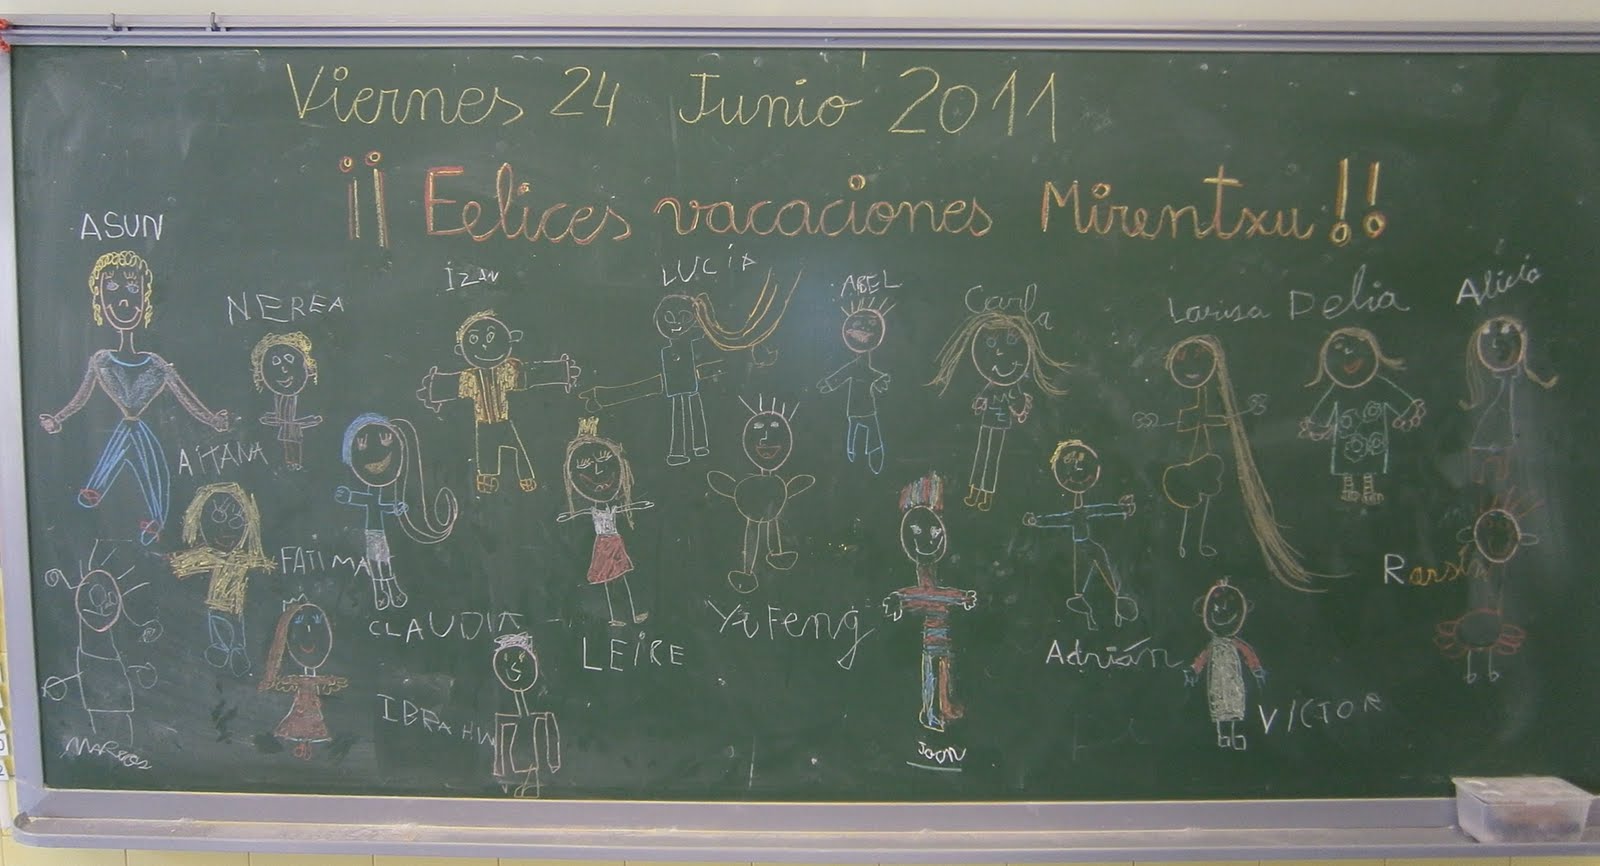 Viernes 24 Junio 2011
¡¡ Felices vacaciones Mirentxu!!
ASUN
NEREA
IZAN
LUCÍA
ABEL
Carla
Larisa
Delia
Alicia
AITANA
FATIMA
CLAUDIA
LEIRE
Yifeng
Adrián
IBRAHIM
VICTOR
MARCOS
Joan